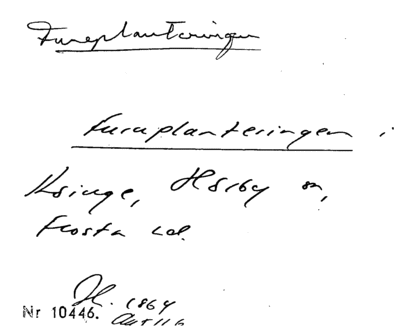 Furuplanteringen
Furuplanteringen i
Ksinge, Hörby sn,
Frosta hd.
Nr 10446. 1864